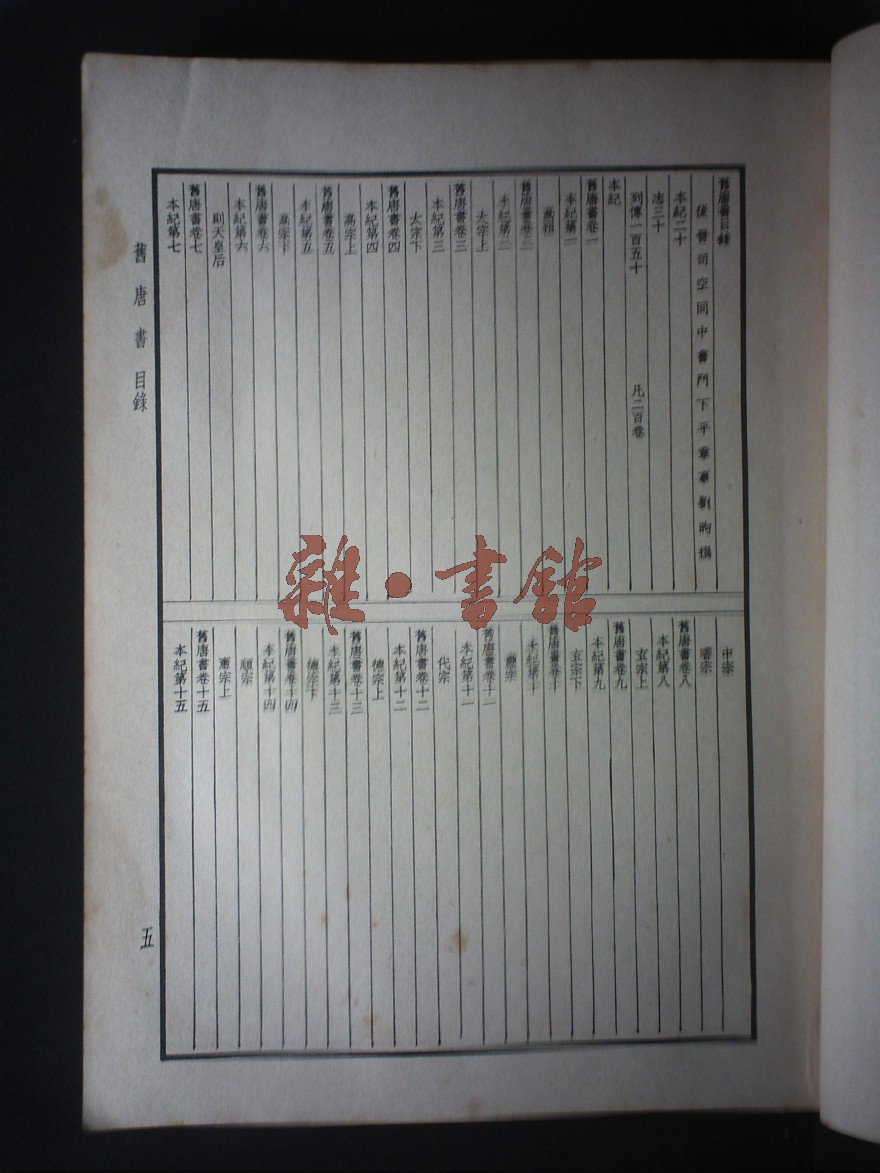 舊唐書目錄
後晉司空同中書門下平章事劉昫撰
本紀二十
志三十
列傳一百五十 凡二百卷
本紀
舊唐書卷一
本紀第一
高祖
舊唐書卷二
本紀第二
太宗上
舊唐書卷三
本紀第三
太宗下
舊唐書卷四
本紀第四
高宗上
舊唐書卷五
本紀第五
高宗下
舊唐書卷六
本紀第六
則天皇后
舊唐書卷七
本紀第七
中宗
睿宗
舊唐書卷八
本紀第八
玄宗上
舊唐書卷九
本紀第九
玄宗下
舊唐書卷十
本紀第十
肅宗
舊唐書卷十一
本紀第十一
代宗
舊唐書卷十二
本紀第十二
德宗上
舊唐書卷十三
本紀第十三
德宗下
舊唐書卷十四
本紀第十四
順宗
憲宗上
舊唐書卷十五
本紀第十五
舊唐書 目錄
五
雜·書館